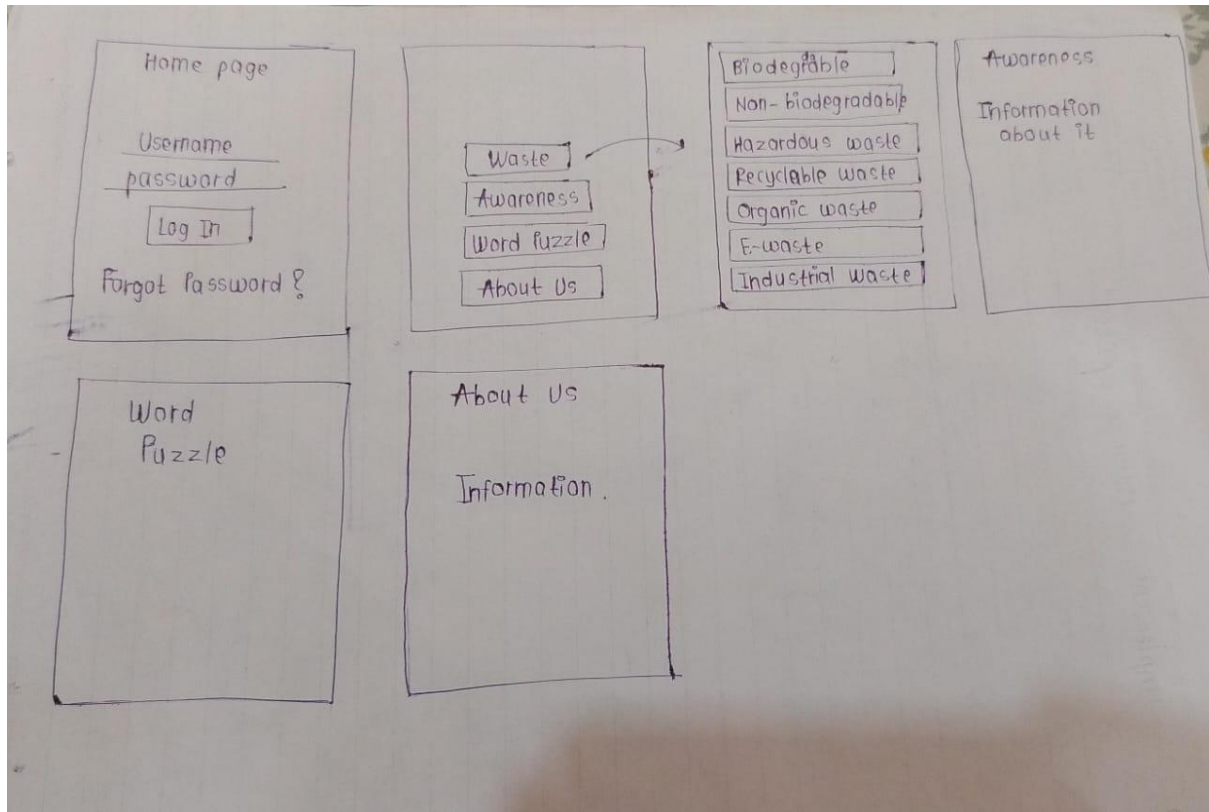 Home page
Username
password
Log In
Forgot Password ?
Waste
Awareness
Word Puzzle
About Us
Biodegradable
Non-biodegradable
Hazardous waste
Recyclable waste
Organic waste
E-waste
Industrial waste
Awareness
Information
about it
Word
Puzzle
About Us
Information.